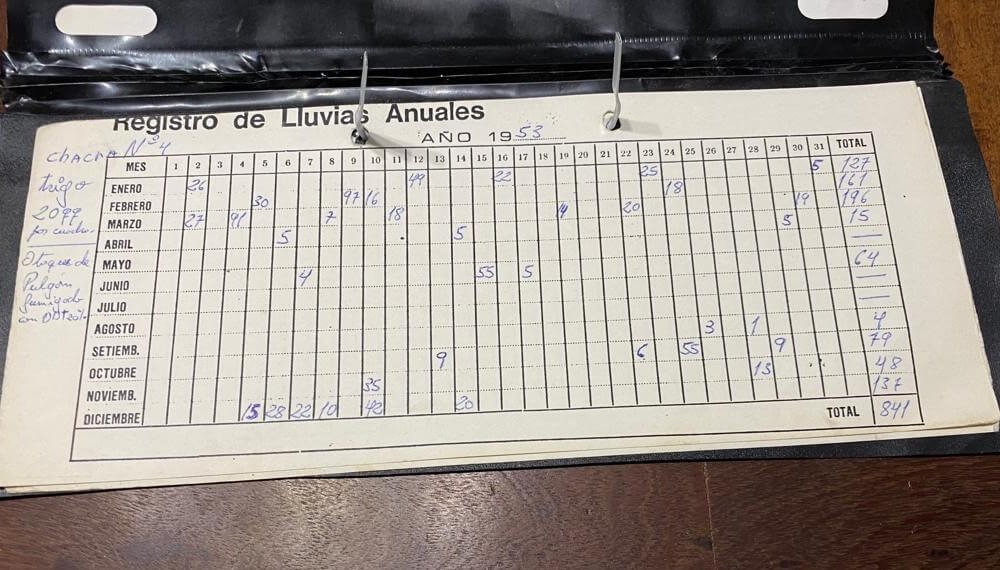 Registro de Lluvias Anuales
AÑO 1953
chacra Nº 4
trigo
2099
por cuadra.
Ataque de
Pulgón
fumigado
con DDT
MES 1 2 3 4 5 6 7 8 9 10 11 12 13 14 15 16 17 18 19 20 21 22 23 24 25 26 27 28 29 30 31 TOTAL
ENERO 26 49 22 25 5 127
FEBRERO 30 97 16 18 161
MARZO 27 91 7 18 14 20 19 196
ABRIL 5 5 5 15
MAYO —
JUNIO 4 55 5 64
JULIO —
AGOSTO —
SETIEMB. 3 1 4
OCTUBRE 9 6 55 9 79
NOVIEMB. 35 13 48
DICIEMBRE 15 28 22 10 42 20 137
TOTAL 841